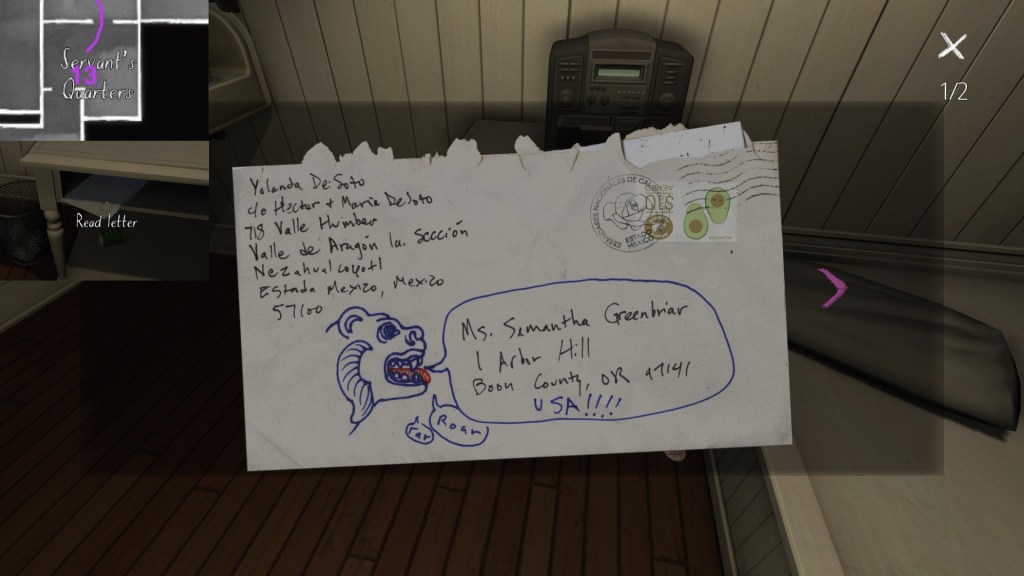 Servant's
13
Quarters
Read letter
1/2
Yolanda DeSoto
c/o Hector + Maria DeSoto
718 Valle Humber
Valle de Aragón 1a. Sección
Nezahualcoyotl
Estada Mexico, Mexico
57100
Ms. Samantha Greenbriar
1 Arbor Hill
Boon County, OR 97141
USA!!!!
Roar